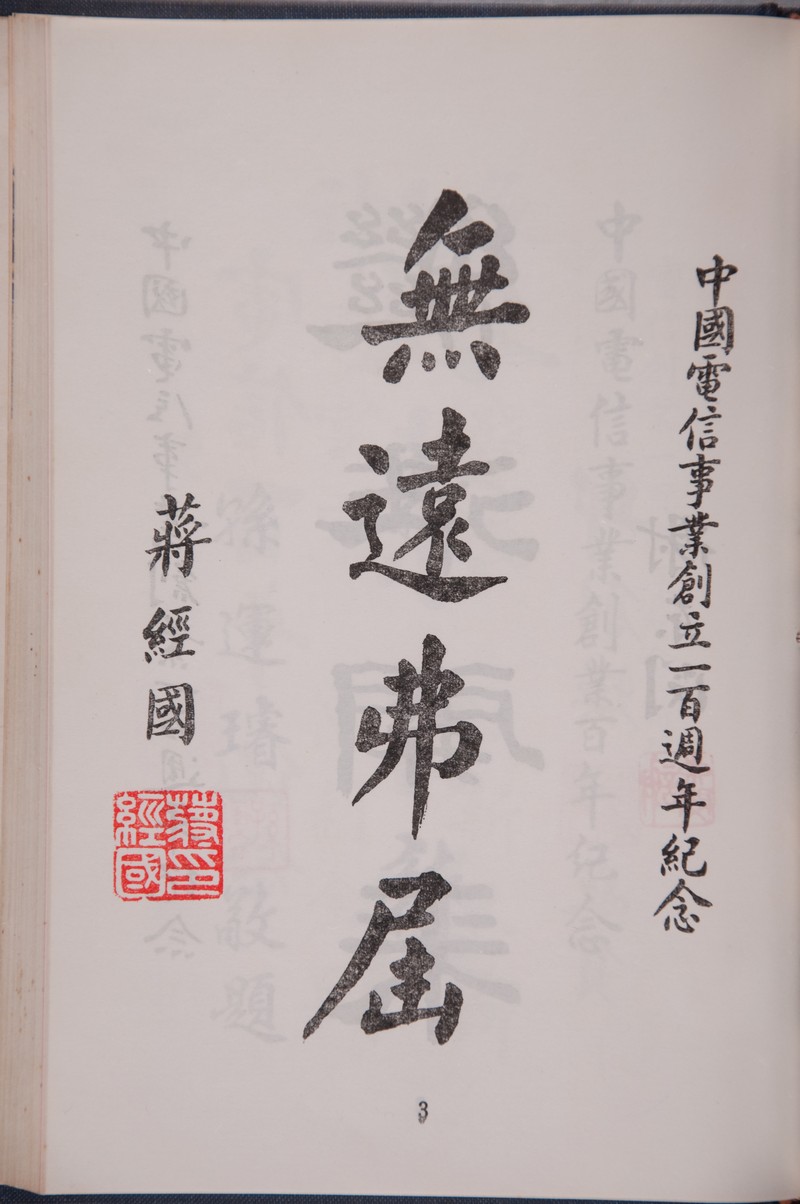 中國電信事業創立一百週年紀念
無遠弗屆
蔣經國
蔣經國印
3